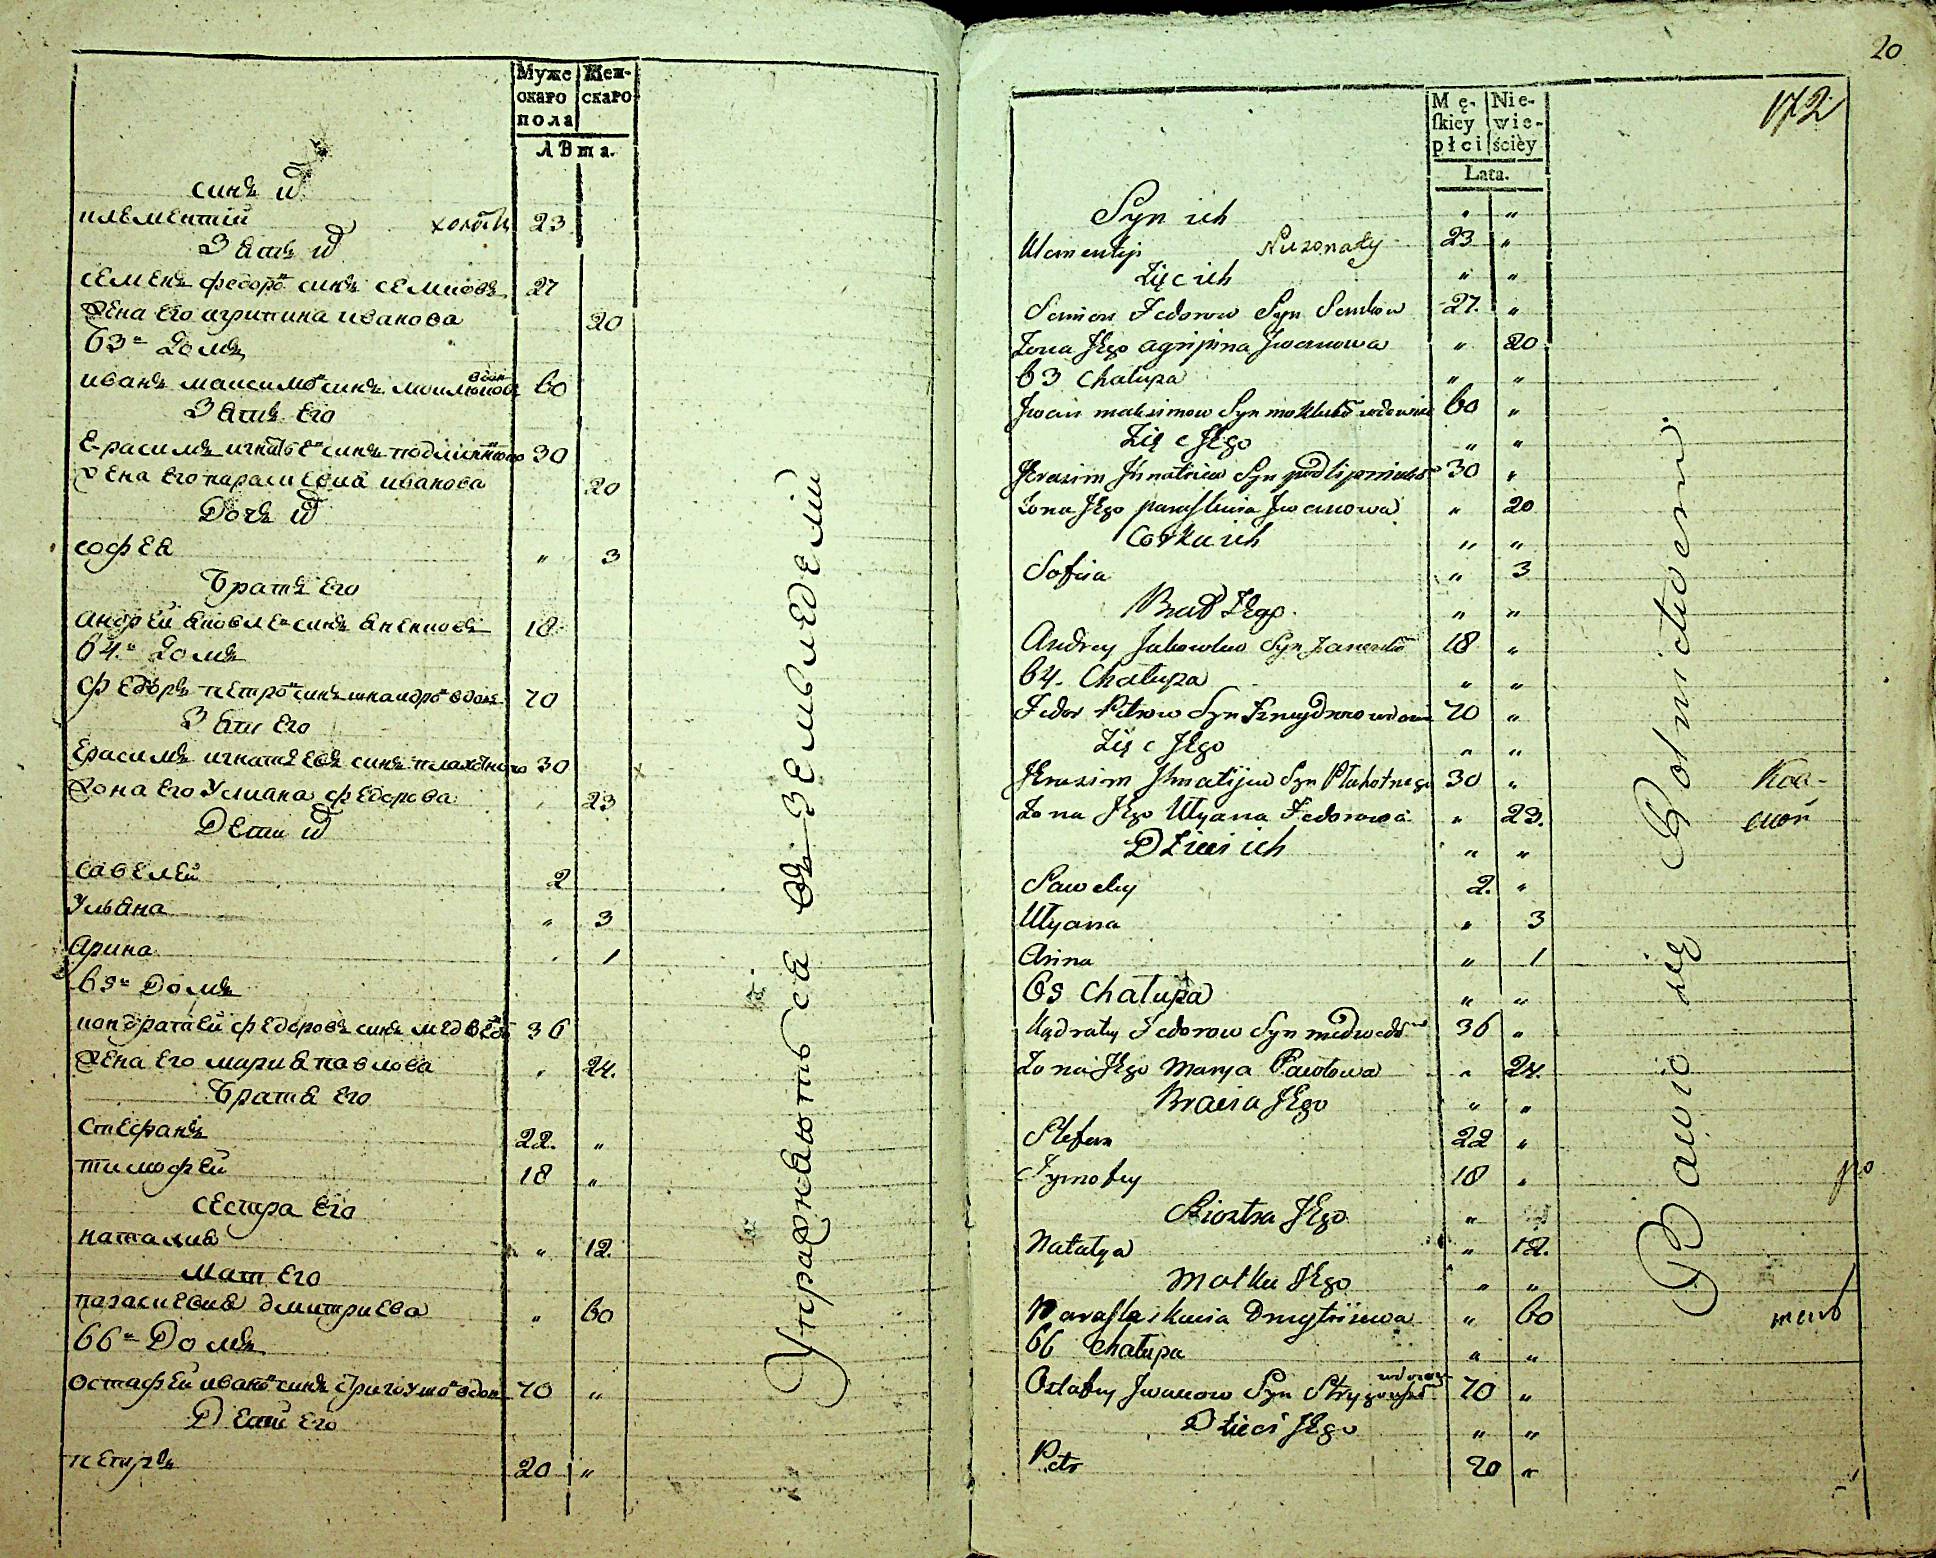 Муже
скаго
пола
Жен-
скаго
лѣта.
синъ их
климентій холостъ 23
Зять их
семенъ федоровъ синъ 27
Жена его агрипина иванова 20
63й Домъ
иванъ максимовъ синъ вдов 60
Зять его
Ерасимъ игнатьевъ синъ 30
Жена его параскевия иванова 20
Дочь их
софѣя " 3
Братъ его
андрей яковлевъ синъ 18
64й Домъ
федоръ петровъ синъ вдовъ 70
Зять его
Ерасимъ игнатѣевъ синъ плахотного 30
Жена его Улиана федорова 23
Дети их
савелей 2
Ульяна " 3
арина " 1
65й Домъ
кондратѣй федоровъ синъ 36
Жена его мария павлова " 24.
Братя его
стефанъ 22. "
тимофей 18 "
сестра его
наталия " 12.
Мат его
параскевия дмитриева " 60
66й Домъ
остафей ивановъ синъ вдов 70 "
Дети его
петръ 20 "
Упражняються въ земледелии
20
172
Mę-
skiey
płci
Nie-
wie-
ściėy
Lata.
Syn ich " "
Klementyi Nieżonaty 23 "
Zięć ich " "
Semion Fedorow Syn 27. "
Żona Jego agripina Jwanowa " 20
63 Chałupa " "
Jwan maksimow Syn wdowiec 60 "
Zięć Jego " "
Jerasim Jhnatiew Syn 30 "
Żona Jego paraskiewia Jwanowa " 20
Corka ich " "
Sofiia " 3
Brat Jego " "
Andrey Jakowlew Syn 18 "
64. Chałupa " "
Fedor Petrow Syn 70 "
Zięć Jego " "
Jerasim Jhnatijew Syn Płahotnego 30 "
Żona Jego Ułyana Fedorowa " 23.
Dzieci ich " "
Sawely 2. "
Ułyana " 3
Arina " 1
65 Chałupa " "
Kądraty Fedorow Syn 36 "
Żona Jego Marya Pawłowa " 24.
Bracia Jego " "
Stefan 22 "
Tymofey 18 "
Siostra Jego "
Natalya " 12.
Matka Jego " "
Paraskewia Dmytriiewa " 60
66 Chałupa " "
Ostafey Jwanow Syn wdowiec 70 "
Dzieci Jego " "
Petr 20 "
Bawią się Rolnictwem.